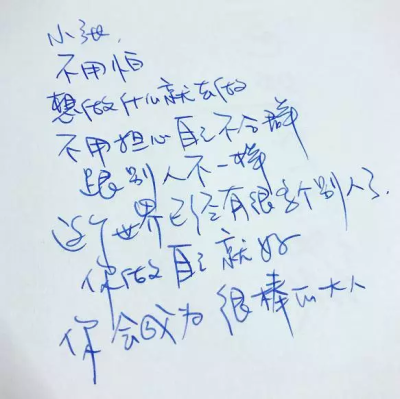 小孩,
不用怕
想做什么就去做
不用担心自己不合群
跟别人不一样
这个世界已经有很多个别人了.
你做自己就好
你会成为很棒的大人